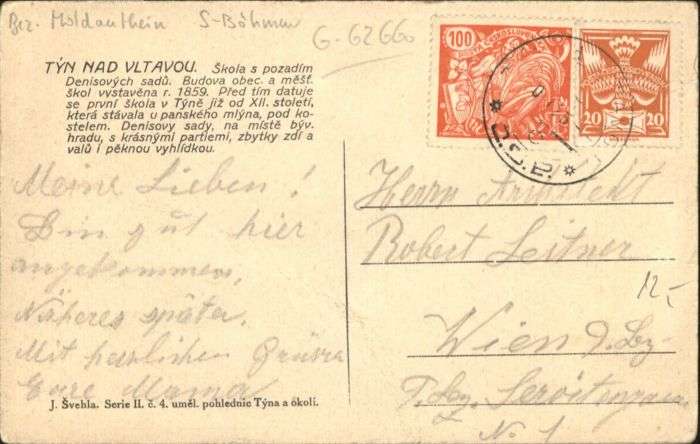 Bez. Moldauthein S-Böhmen
G-62660
TÝN NAD VLTAVOU. Škola s pozadím
Denisových sadů. Budova obec. a měšť.
škol vystavěna r. 1859. Před tím datuje
se první škola v Týně již od XII. století,
která stávala u panského mlýna, pod ko-
stelem. Denisovy sady, na místě býv.
hradu, s krásnými partiemi, zbytky zdí a
valů i pěknou vyhlídkou.
100
20 20
Meine Lieben!
Bin gut hier
angekommen,
Näheres später.
Mit herzlichen Grüssen
Eure Mama
J. Švehla. Serie II. č. 4. uměl. pohlednic Týna a okolí.
Herrn Architekt
Robert Leitner
12,-
Wien
N 1